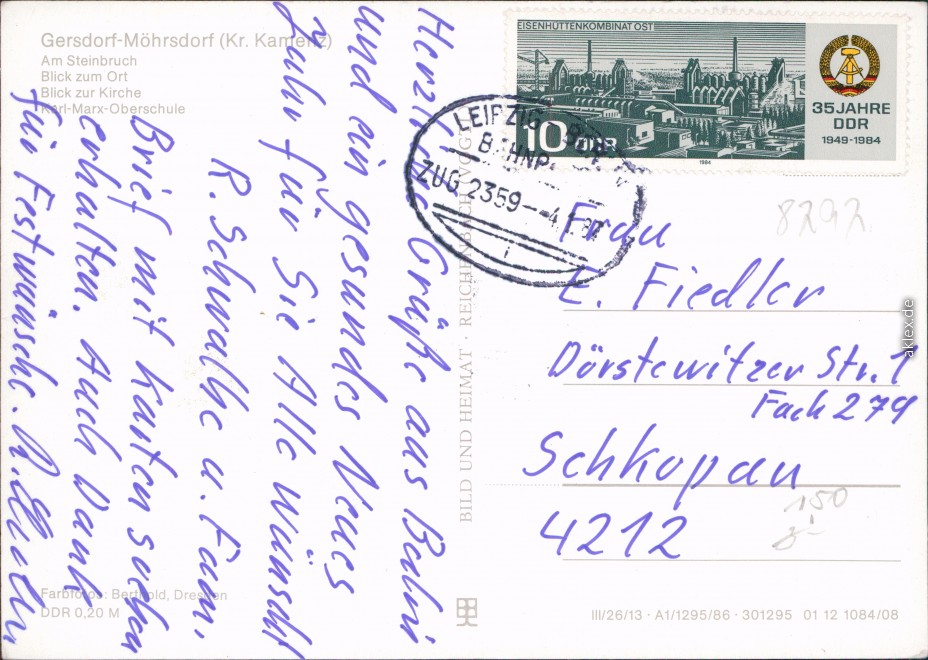 Gersdorf-Möhrsdorf (Kr. Kamenz)
Am Steinbruch
Blick zum Ort
Blick zur Kirche
Karl-Marx-Oberschule
EISENHÜTTENKOMBINAT OST
10 DDR
35 JAHRE
DDR
1949-1984
1984
LEIPZIG
BAHNP.
ZUG 2359
Herzliche Grüße aus
und ein gesundes Neues
Jahr für Sie Alle wünscht
R. Schwalbe u. Fam.
Brief mit Karten soeben
erhalten. Auch Dank
für Festwünsche.
8292
Frau
E. Fiedler
Dörstewitzer Str. 1
Fach 279
Schkopau
4212
150
BILD UND HEIMAT · REICHENBACH (VOGTL)
Farbfotos: Berthold, Dresden
DDR 0,20 M
III/26/13 · A1/1295/86 · 301295 01 12 1084/08
aklex.de